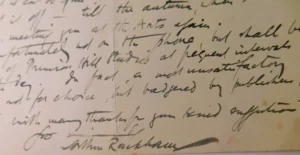 it off — till the autumn, when
meeting you at the Arts again.
fortunately not on the phone, but shall be
Primrose Hill Studios at frequent intervals
in fact, a most unsatisfactory
not for choice, but badgered by publishers
with many thanks for your kind suggestion
Arthur Rackham